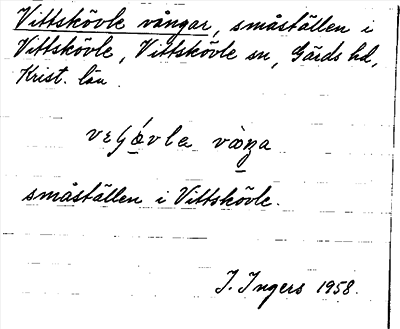 Vittskövle vångar, småställen i
Vittskövle, Vittskövle sn, Gärds hd,
Krist. län.
småställen i Vittskövle.
I. Ingers 1958.